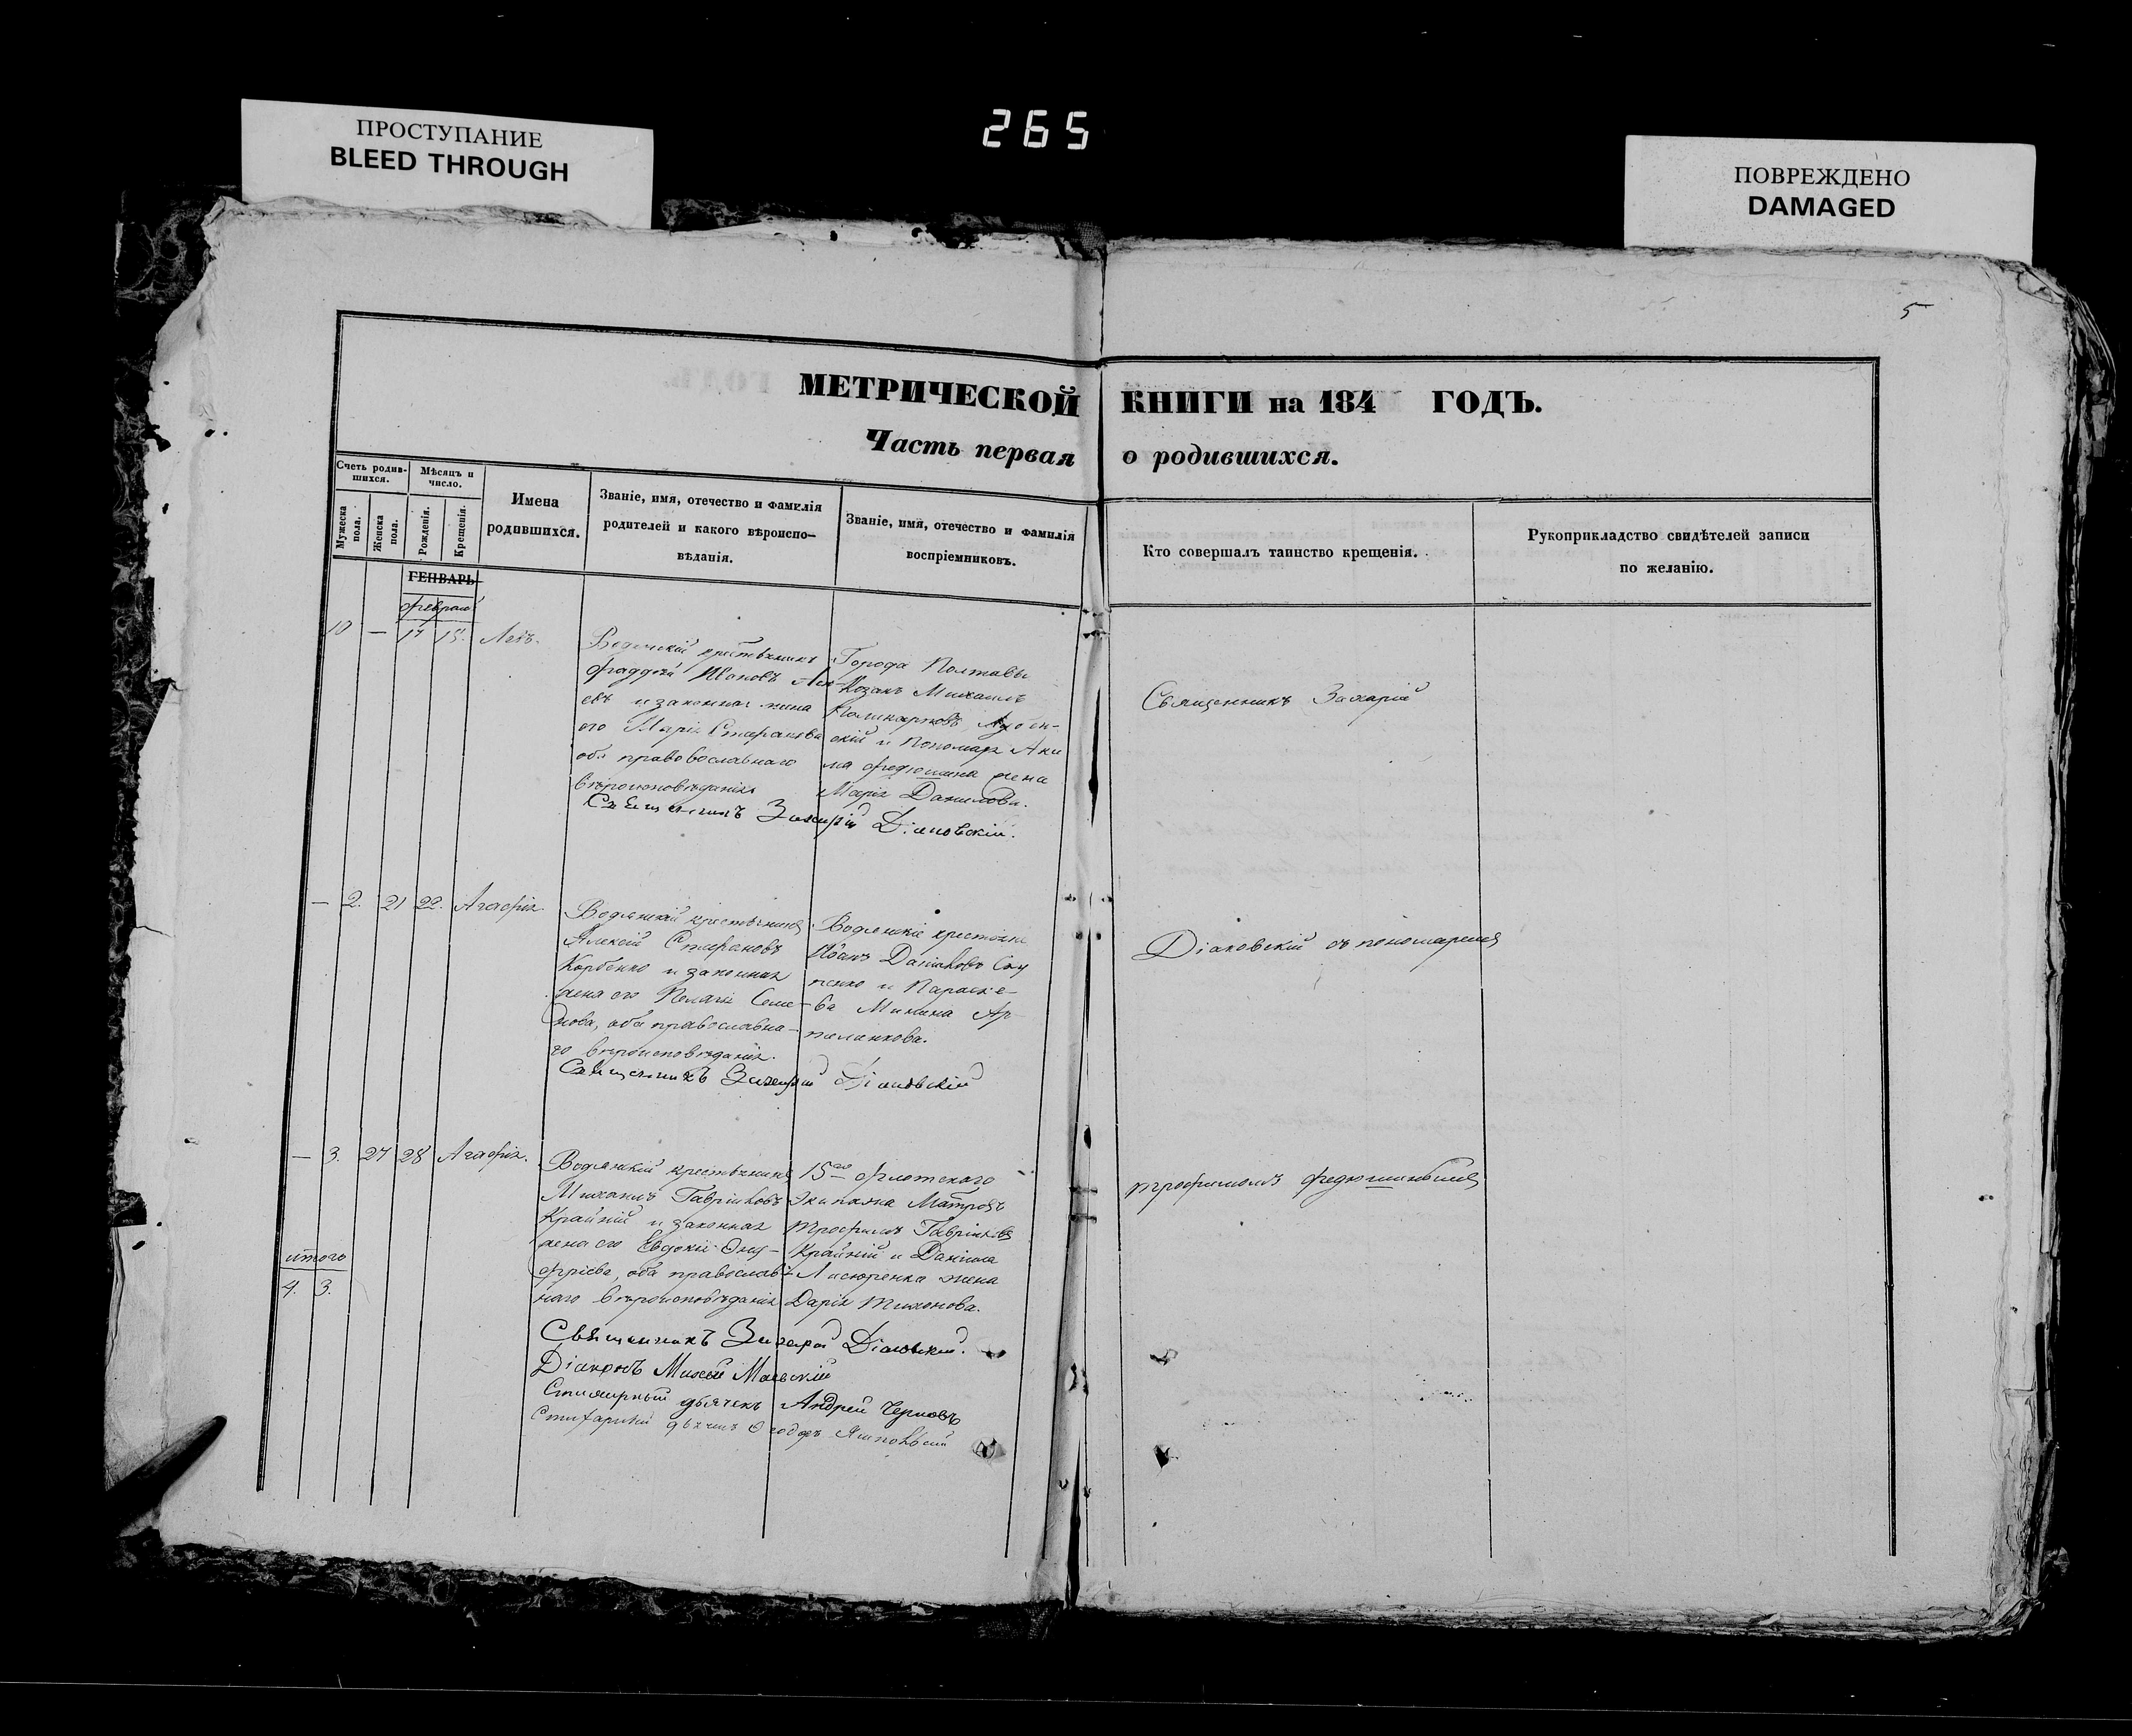 265
ПРОСТУПАНИЕ
BLEED THROUGH
ПОВРЕЖДЕНО
DAMAGED
5
МЕТРИЧЕСКОЙ КНИГИ на 184 ГОДЪ.
Часть первая о родившихся.
Счетъ родив-
шихся.
Мужеска пола.
Женска пола.
Мѣсяцъ и
число.
Рожденія.
Крещенія.
Имена
родившихся.
Званіе, имя, отечество и фамилія
родителей и какого вѣроиспо-
вѣданія.
Званіе, имя, отечество и фамилія
воспріемниковъ.
Кто совершалъ таинство крещенія.
Рукоприкладство свидѣтелей записи
по желанію.
ГЕНВАРЬ
февраль
10 — 17 18.
Фаддей Ивановъ
евъ и законная жена
его Марія Стефанова
оба правовославнаго
вѣроисповѣданія
Города Полтавы
Козакъ Михаилъ
Поликарповъ
скій и Пономаря Аки
ма Федюшина жена
Марія Данилова.
Священникъ Захарій Діаковскій.
Священникъ Захарій
— 2. 21 22. Агафія
Водянскій крестьянинъ
Алексій Стефановъ
Корбенко и законная
жена его Пелагія Семе-
нова, оба православна-
го вѣроисповѣданія.
Водянскіе крестьяне
Іоанъ Даніиловъ
и Параске-
ва Минина Ар-
Священникъ Захарій Діаковскій
Діаковскій съ пономаремъ
— 3. 27 28 Агафія.
Водянскій крестьянинъ
Михаилъ Гавріиловъ
Крайній и законная
жена его Евдокія Ону-
фріева, оба православ-
наго вѣроисповѣданія
15го флотскаго
Экипажа Матрозъ
Трофимъ Гавріиловъ
Крайній и Даніила
Лисюренка жена
Дарія Тихонова.
Трофимомъ Федюшинымъ
итого
4. 3.
Священникъ Захарій Діаковскій.
Діаконъ Михей Маевскій
Стихарный дьячекъ Андрей Черновъ
Стихарный дьячекъ Ѳеодоръ